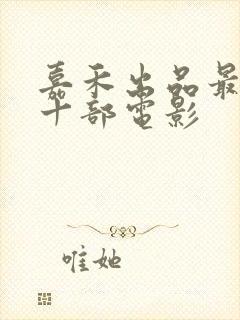 嘉禾出品最
十部电影
唯她